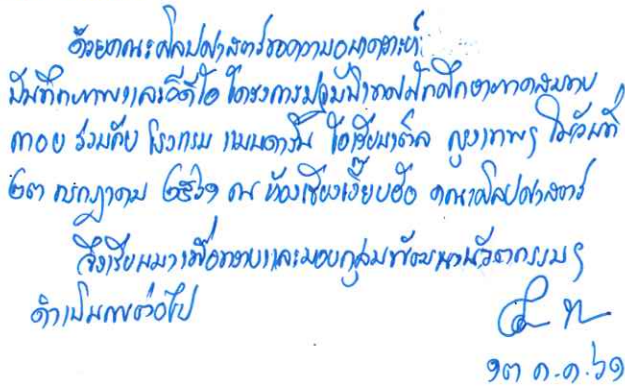 ด้วยคณะศิลปศาสตร์ขอความอนุเคราะห์
บันทึกภาพและวีดีโอ โครงการปฐมนิเทศนักศึกษาภาคสมทบ
ร่วมกับ โรงแรม แมนดาริน โอเรียนเต็ล กรุงเทพฯ ในวันที่
๒๓ กรกฎาคม ๒๕๖๑ ณ ห้องเชียงเงี๊ยบฮ้อ คณะศิลปศาสตร์
จึงเรียนมาเพื่อทราบและมอบกลุ่มพัฒนานวัตกรรมฯ
ดำเนินการต่อไป
๑๓ ก.ค. ๖๑